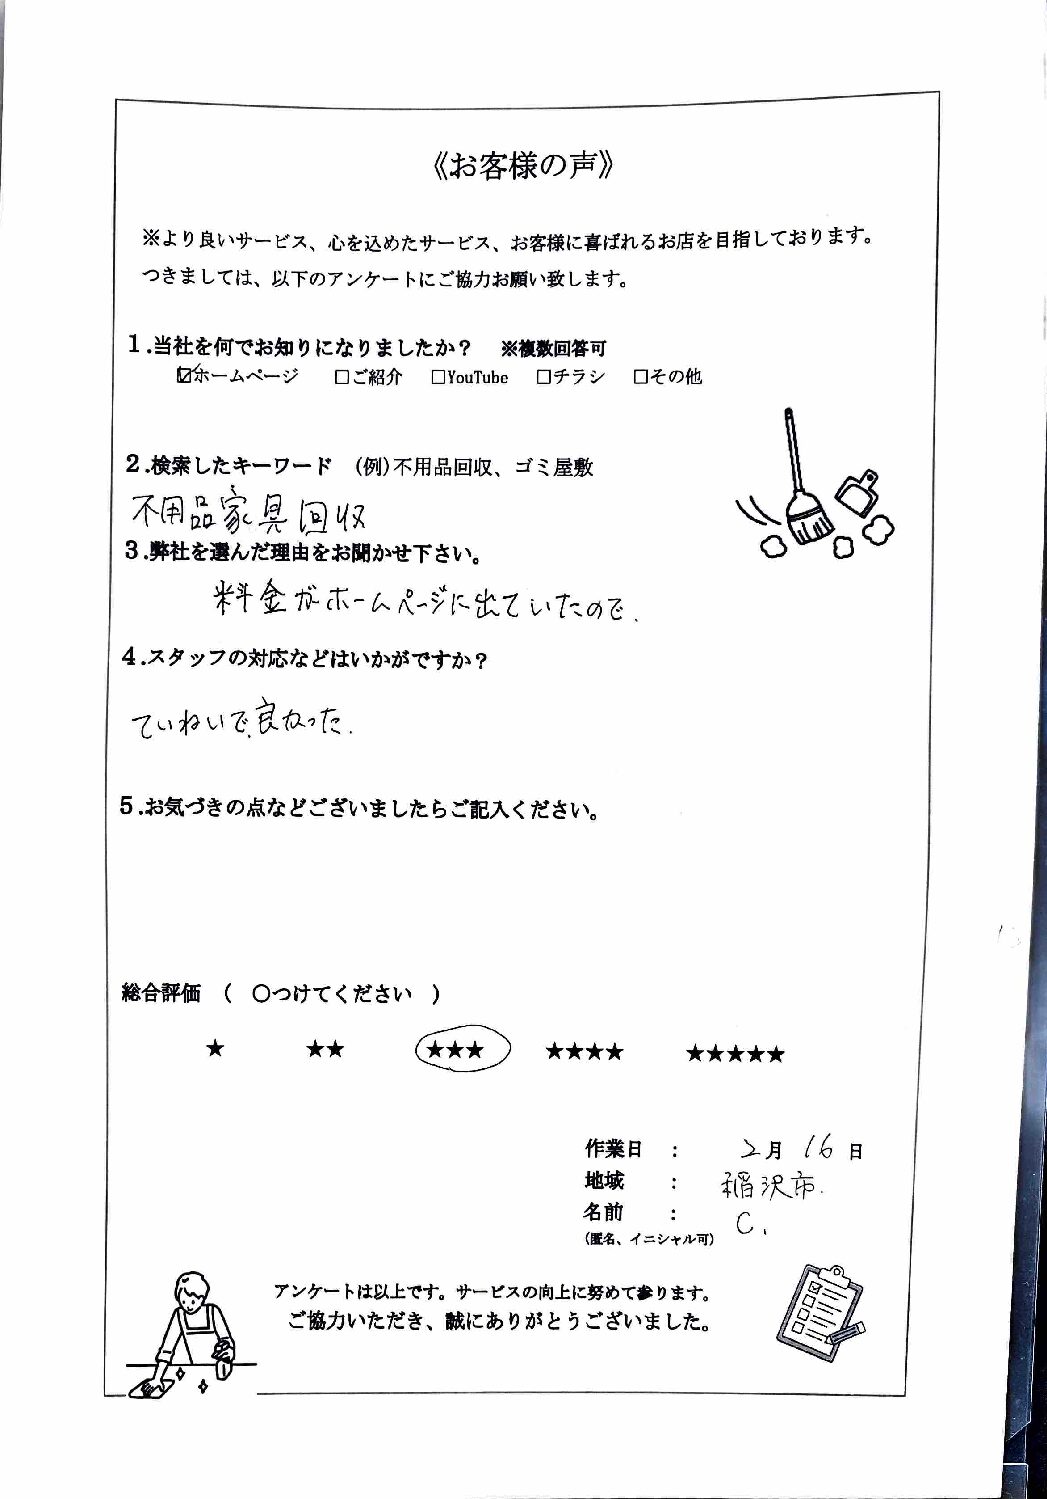 《お客様の声》
※より良いサービス、心を込めたサービス、お客様に喜ばれるお店を目指しております。
つきましては、以下のアンケートにご協力お願い致します。
1.当社を何でお知りになりましたか？　※複数回答可
☑ホームページ　□ご紹介　□YouTube　□チラシ　□その他
2.検索したキーワード　(例)不用品回収、ゴミ屋敷
不用品家具回収
3.弊社を選んだ理由をお聞かせ下さい。
料金がホームページに出ていたので.
4.スタッフの対応などはいかがですか？
ていねいで良かった.
5.お気づきの点などございましたらご記入ください。
総合評価　(　〇つけてください　)
★　★★　★★★　★★★★　★★★★★
作業日　：　2月 16日
地域　：　稲沢市.
名前　：　C.
(匿名、イニシャル可)
アンケートは以上です。サービスの向上に努めて参ります。
ご協力いただき、誠にありがとうございました。